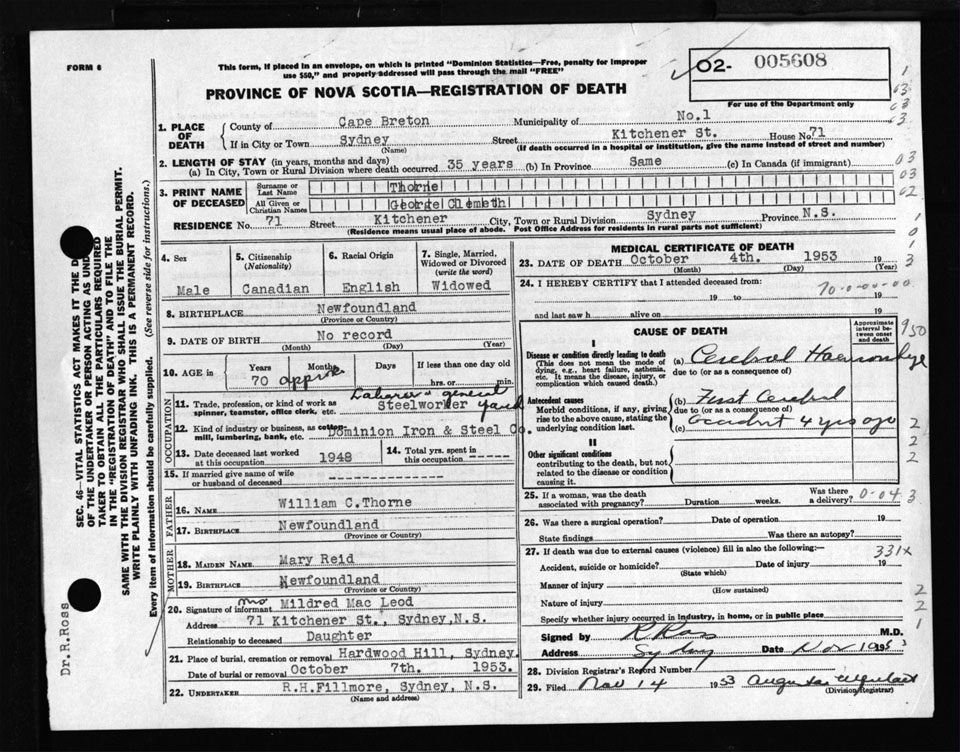 FORM 6
This form, if placed in an envelope, on which is printed "Dominion Statistics—Free, penalty for improper
use $50," and properly addressed will pass through the mail "FREE"
PROVINCE OF NOVA SCOTIA—REGISTRATION OF DEATH
02- 005608
For use of the Department only
1. PLACE OF DEATH
County of Cape Breton Municipality of No.1
If in City or Town Sydney Street Kitchener St. House No. 71
(Name) (If death occurred in a hospital or institution, give the name instead of street and number)
2. LENGTH OF STAY (in years, months and days)
(a) In City, Town or Rural Division where death occurred 35 years (b) In Province Same (c) In Canada (if immigrant)
3. PRINT NAME OF DECEASED
Surname or Last Name Thorne
All Given or Christian Names George Clemeth
RESIDENCE No. 71 Street Kitchener City, Town or Rural Division Sydney Province N.S.
(Residence means usual place of abode. Post Office Address for residents in rural parts not sufficient)
4. Sex
Male
5. Citizenship (Nationality)
Canadian
6. Racial Origin
English
7. Single, Married, Widowed or Divorced (write the word)
Widowed
8. BIRTHPLACE Newfoundland
(Province or Country)
9. DATE OF BIRTH No record
(Month) (Day) (Year)
10. AGE in Years Months Days If less than one day old
70 approx hrs. or min.
OCCUPATION
Laborer general
11. Trade, profession, or kind of work as Steelworker yard
spinner, teamster, office clerk, etc.
12. Kind of industry or business, as cotton-
mill, lumbering, bank, etc. Dominion Iron & Steel Co.
13. Date deceased last worked at this occupation 1948
14. Total yrs. spent in this occupation -----
15. If married give name of wife or husband of deceased -------
FATHER
16. NAME William C.Thorne
17. BIRTHPLACE Newfoundland
(Province or Country)
MOTHER
18. MAIDEN NAME Mary Reid
19. BIRTHPLACE Newfoundland
(Province or Country)
20. Signature of informant Mrs Mildred Mac Leod
Address 71 Kitchener St., Sydney,N.S.
Relationship to deceased Daughter
21. Place of burial, cremation or removal Hardwood Hill, Sydney.
Date of burial or removal October 7th. 1953.
22. UNDERTAKER R.H.Fillmore, Sydney, N.S.
(Name and address)
MEDICAL CERTIFICATE OF DEATH
23. DATE OF DEATH October 4th. 1953 19
(Month) (Day) (Year)
24. I HEREBY CERTIFY that I attended deceased from:
19 to 19
and last saw h alive on 19
CAUSE OF DEATH
Approximate interval between onset and death
I
Disease or condition directly leading to death
(This does not mean the mode of dying, e.g., heart failure, asthenia, etc. It means the disease, injury, or complication which caused death.)
(a) Cerebral Haemorrhage
due to (or as a consequence of)
Antecedent causes
Morbid conditions, if any, giving rise to the above cause, stating the underlying condition last.
(b) First Cerebral
due to (or as a consequence of)
(c) Accident 4 yrs ago
II
Other significant conditions
contributing to the death, but not related to the disease or condition causing it.
25. If a woman, was the death associated with pregnancy? Duration weeks. Was there a delivery?
26. Was there a surgical operation? Date of operation 19
State findings Was there an autopsy?
27. If death was due to external causes (violence) fill in also the following:—
Accident, suicide or homicide? Date of injury 19
(State which)
Manner of injury
(How sustained)
Nature of injury
Specify whether injury occurred in industry, in home, or in public place
Signed by R Ross M.D.
Address Sydney Date Nov 1953
28. Division Registrar's Record Number
29. Filed Nov 14 1953
(Division Registrar)
70-0-00-00
950
0-04
331X
SEC. 46—VITAL STATISTICS ACT MAKES IT THE D
OF THE UNDERTAKER OR PERSON ACTING AS UND
TAKER TO OBTAIN ALL THE PARTICULARS REQUIRED
IN THE "REGISTRATION OF DEATH" AND TO FILE THE
SAME WITH THE DIVISION REGISTRAR WHO SHALL ISSUE THE BURIAL PERMIT.
WRITE PLAINLY WITH UNFADING INK. THIS IS A PERMANENT RECORD.
Every item of information should be carefully supplied. (See reverse side for instructions.)
Dr.R.Ross